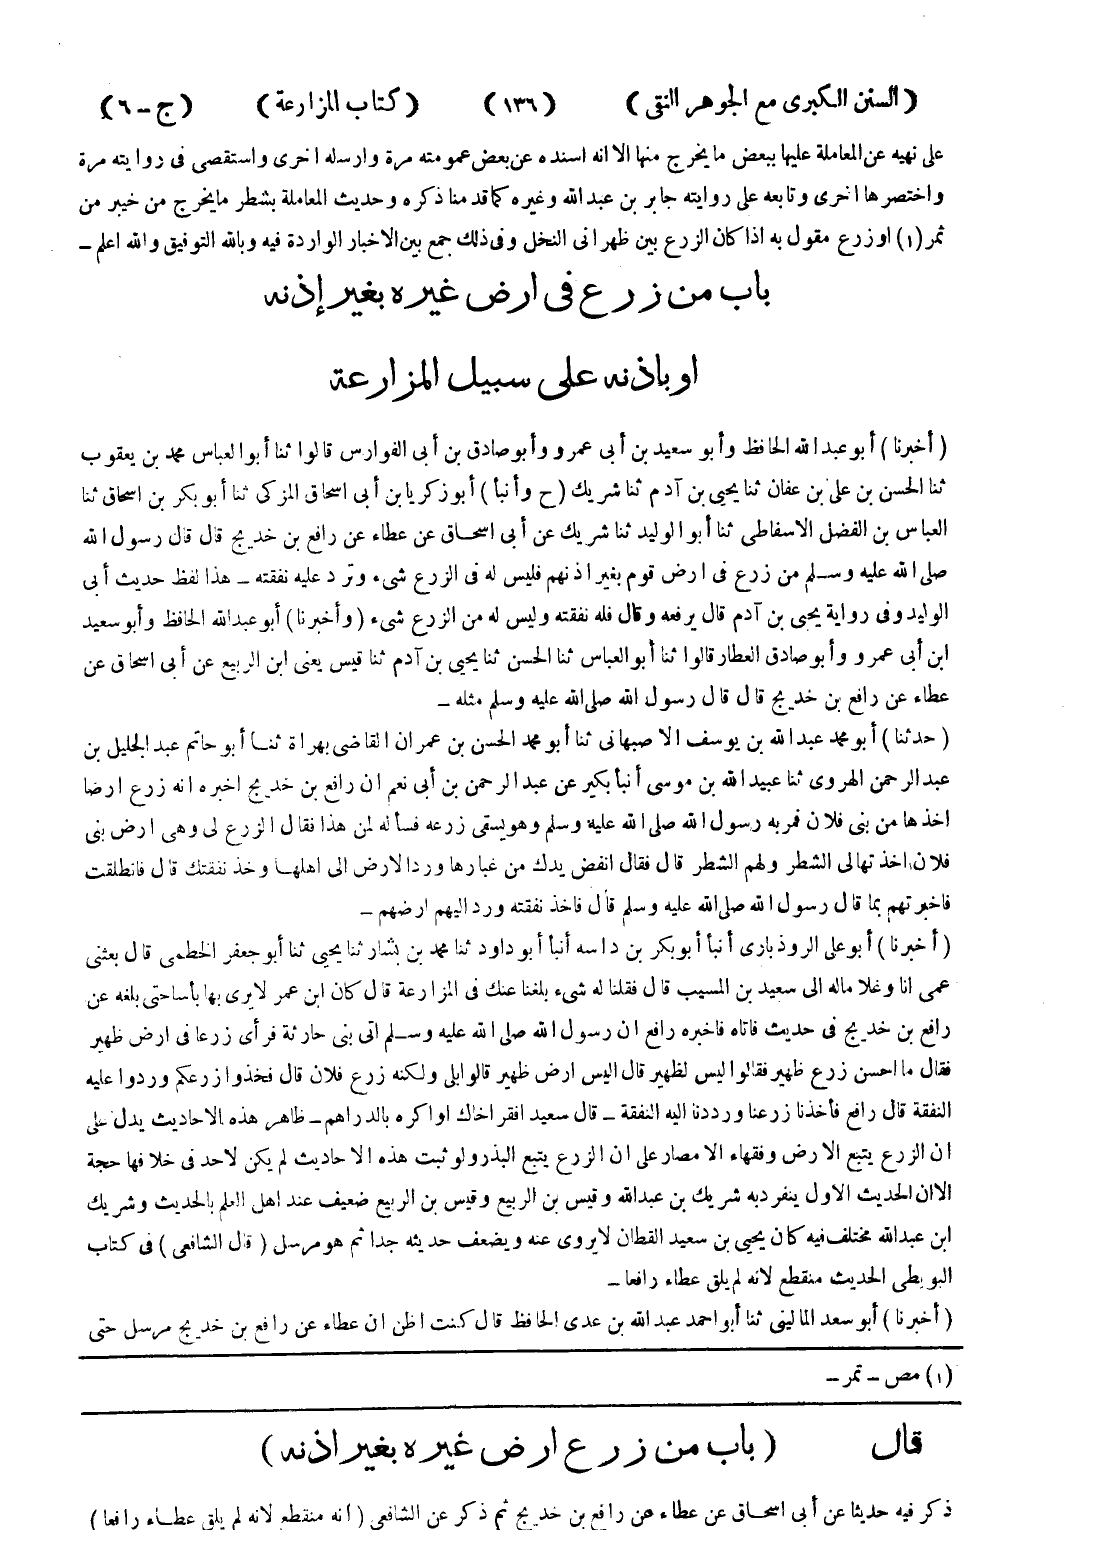 ( السنن الكبرى مع الجوهر النقى ) ( ١٣٦ ) ( كتاب المزارعة ) ( ج - ٦ )
على نهيه عن المعاملة عليها ببعض ما يخرج منها الا انه اسنده عن بعض عمومته مرة وارسله اخرى واستقصى فى روايته مرة
واختصرها اخرى وتابعه على روايته جابر بن عبد الله وغيره كما قدمنا ذكره وحديث المعاملة بشطر ما يخرج من خيبر من
ثمر (١) اوزرع مقول به اذا كان الزرع بين ظهرانى النخل وفى ذلك جمع بين الاخبار الواردة فيه وبالله التوفيق والله اعلم -
باب من زرع فى ارض غيره بغير إذنه
او باذنه على سبيل المزارعة
( أخبرنا ) أبو عبد الله الحافظ وأبو سعيد بن أبى عمرو وأبو صادق بن أبى الفوارس قالوا ثنا أبو العباس محمد بن يعقوب
ثنا الحسن بن على بن عفان ثنا يحيى بن آدم ثنا شريك ( ح وأنبأ ) أبو زكريا بن أبى اسحاق المزكى ثنا أبو بكر بن اسحاق ثنا
العباس بن الفضل الاسفاطى ثنا أبو الوليد ثنا شريك عن أبى اسحاق عن عطاء عن رافع بن خديج قال قال رسول الله
صلى الله عليه وسلم من زرع فى ارض قوم بغير اذنهم فليس له فى الزرع شىء وترد عليه نفقته - هذا لفظ حديث أبى
الوليد وفى رواية يحيى بن آدم قال يرفعه وقال فله نفقته وليس له من الزرع شىء ( وأخبرنا ) أبو عبد الله الحافظ وأبو سعيد
ابن أبى عمرو وأبو صادق العطار قالوا ثنا أبو العباس ثنا الحسن ثنا يحيى بن آدم ثنا قيس يعنى ابن الربيع عن أبى اسحاق عن
عطاء عن رافع بن خديج قال قال رسول الله صلى الله عليه وسلم مثله -
( حدثنا ) أبو محمد عبد الله بن يوسف الاصبهانى ثنا أبو محمد الحسن بن عمران القاضى بهراة ثنا أبو حاتم عبد الجليل بن
عبد الرحمن الهروى ثنا عبيد الله بن موسى أنبأ بكير عن عبد الرحمن بن أبى نعم ان رافع بن خديج اخبره انه زرع ارضا
اخذها من بنى فلان فمر به رسول الله صلى الله عليه وسلم وهو يسقى زرعه فسأله لمن هذا فقال الزرع لى وهى ارض بنى
فلان اخذتها لى الشطر ولهم الشطر قال فقال انفض يدك من غبارها ورد الارض الى اهلها وخذ نفقتك قال فانطلقت
فاخبرتهم بما قال رسول الله صلى الله عليه وسلم قال فاخذ نفقته ورد اليهم ارضهم -
( أخبرنا ) أبو على الروذبارى أنبأ أبو بكر بن داسه أنبأ أبو داود ثنا محمد بن بشار ثنا يحيى ثنا أبو جعفر الخطمى قال بعثنى
عمى انا وغلاما له الى سعيد بن المسيب قال فقلنا له شىء بلغنا عنك فى المزارعة قال كان ابن عمر لا يرى بها بأسا حتى بلغه عن
رافع بن خديج فى حديث فاتاه فاخبره رافع ان رسول الله صلى الله عليه وسلم اتى بنى حارثة فرأى زرعا فى ارض ظهير
فقال ما احسن زرع ظهير فقالوا ليس لظهير قال اليس ارض ظهير قالوا بلى ولكنه زرع فلان قال فخذوا زرعكم وردوا عليه
النفقة قال رافع فأخذنا زرعنا ورددنا اليه النفقة - قال سعيد افقر اخاك او اكره بالدراهم - ظاهر هذه الاحاديث يدل على
ان الزرع يتبع الارض وفقهاء الامصار على ان الزرع يتبع البذر ولو ثبت هذه الاحاديث لم يكن لاحد فى خلافها حجة
الا ان الحديث الاول ينفرد به شريك بن عبد الله وقيس بن الربيع وقيس بن الربيع ضعيف عند اهل العلم بالحديث وشريك
ابن عبد الله مختلف فيه كان يحيى بن سعيد القطان لا يروى عنه ويضعف حديثه جدا ثم هو مرسل ( قال الشافعى ) فى كتاب
البويطى الحديث منقطع لانه لم يلق عطاء رافعا -
( أخبرنا ) أبو سعد المالينى ثنا أبو احمد عبد الله بن عدى الحافظ قال كنت اظن ان عطاء عن رافع بن خديج مرسل حتى
(١) مص - تمر -
قال ( باب من زرع ارض غيره بغير اذنه )
ذكر فيه حديثا عن أبى اسحاق عن عطاء عن رافع بن خديج ثم ذكر عن الشافعى ( انه منقطع لانه لم يلق عطاء رافعا )